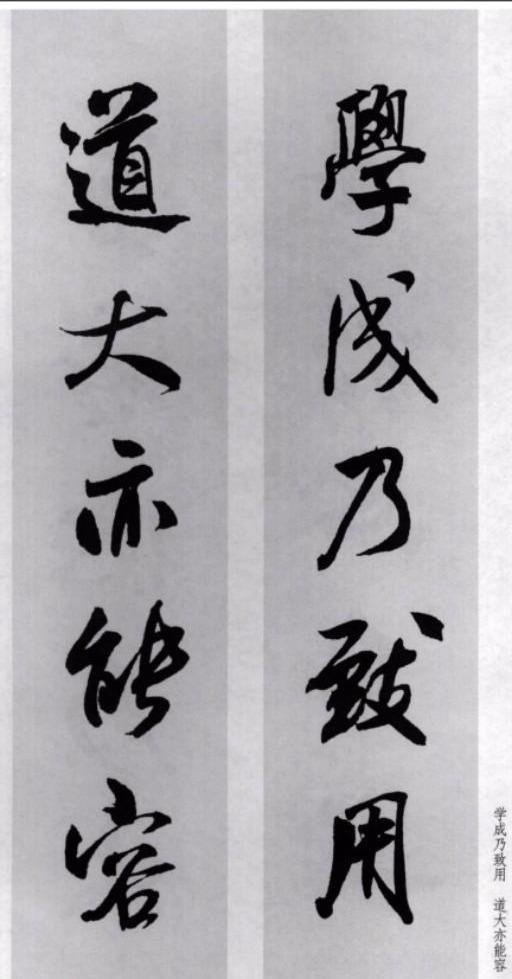 學成乃致用
道大亦能容
学成乃致用 道大亦能容